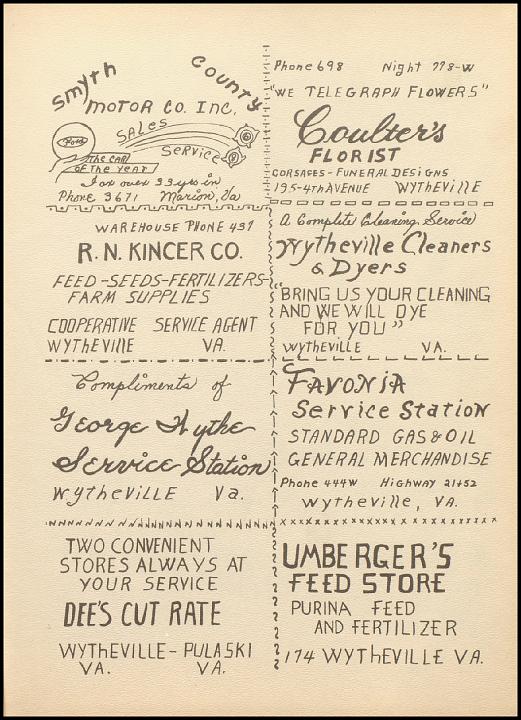 Smyth County
MOTOR CO. INC.
SALES
SERVICE
Ford
6
8
THE CAR
OF THE YEAR
For over 33 yrs in
Phone 3671 Marion, Va
WAREHOUSE PHONE 437
R. N. KINCER CO.
FEED-SEEDS-FERTILIZERS-
FARM SUPPLIES
COOPERATIVE SERVICE AGENT
WYTHEVILLE VA.
Compliments of
George Wythe
Service Station
WYTHEVILLE Va.
TWO CONVENIENT
STORES ALWAYS AT
YOUR SERVICE
DEE'S CUT RATE
WYTHEVILLE- PULASKI
VA. VA.
Phone 698 Night 778-W
"WE TELEGRAPH FLOWERS"
Coulter's
FLORIST
CORSAGES - FUNERAL DESIGNS
195-4TH AVENUE WYTHEVILLE
A Complete Cleaning Service
Wytheville Cleaners
& Dyers
"BRING US YOUR CLEANING
AND WE WILL DYE
FOR YOU"
WYTHEVILLE VA.
FAVONIA
Service Station
STANDARD GAS & OIL
GENERAL MERCHANDISE
Phone 444W Highway 21+52
Wytheville, VA.
UMBERGER'S
FEED STORE
PURINA FEED
AND FERTILIZER
174 WYTHEVILLE VA.